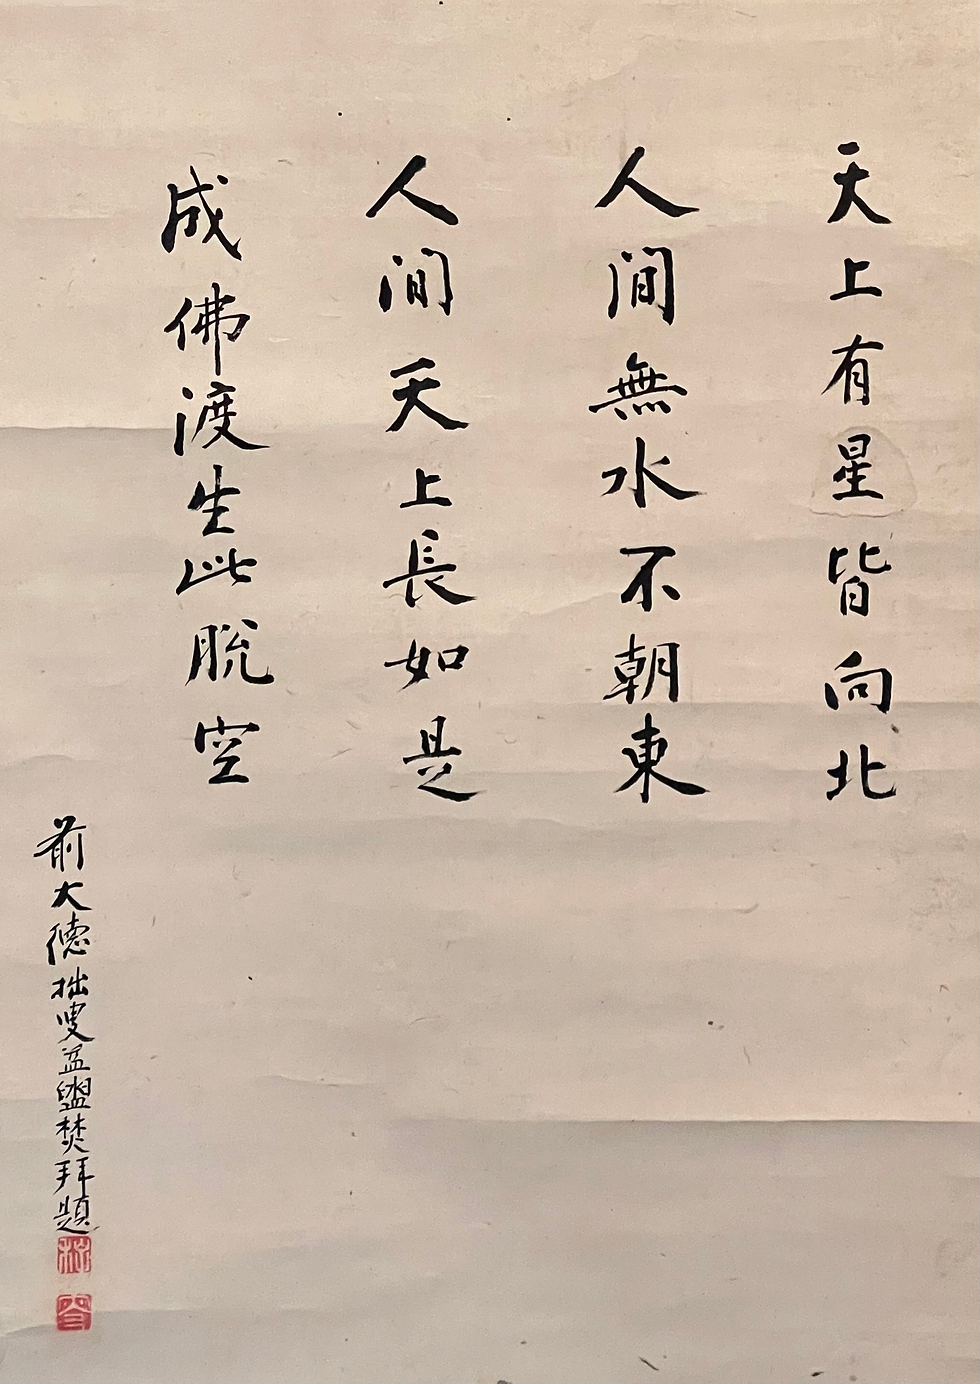 天上有星皆向北
人間無水不朝東
人間天上長如是
成佛渡生此脫空
前大德拙叟益盥焚拜題